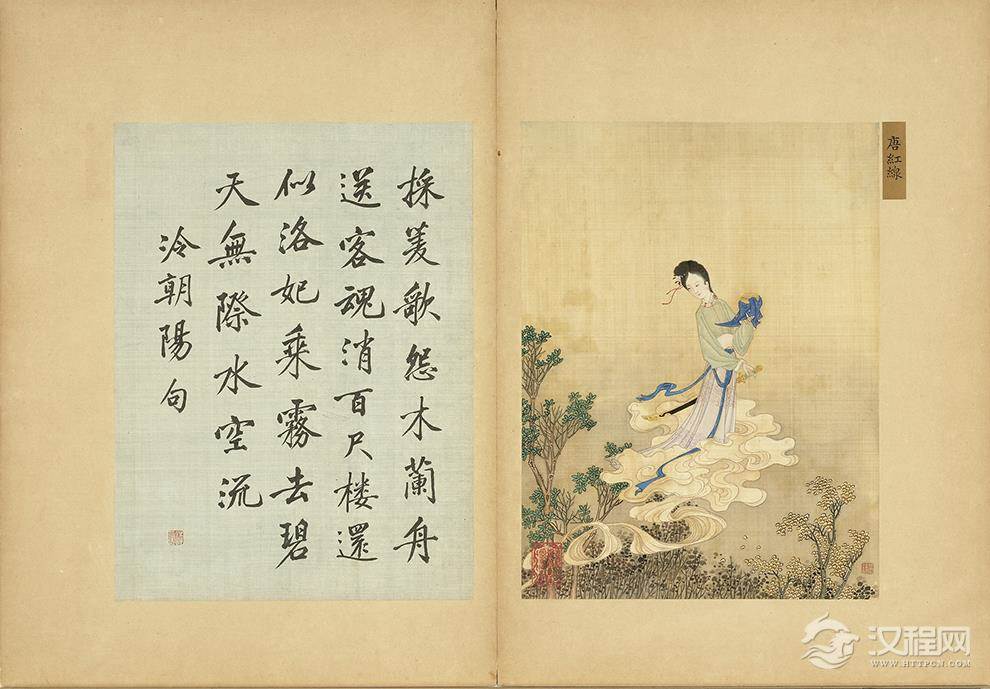 唐紅線
採菱歌怨木蘭舟
送客魂消百尺楼還
似洛妃乘霧去碧
天無際水空流
冷朝陽句
汉程网
WWW.HTTPCN.COM